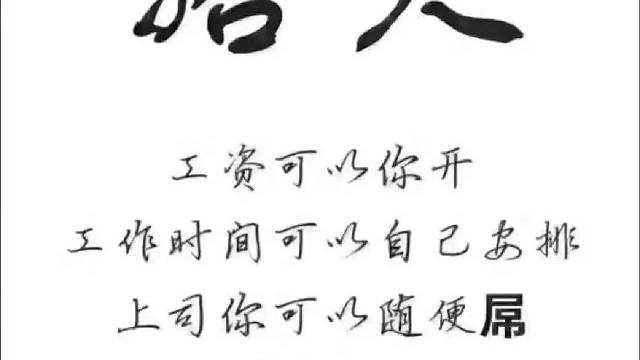 工资可以你开
工作时间可以自己安排
上司你可以随便屌